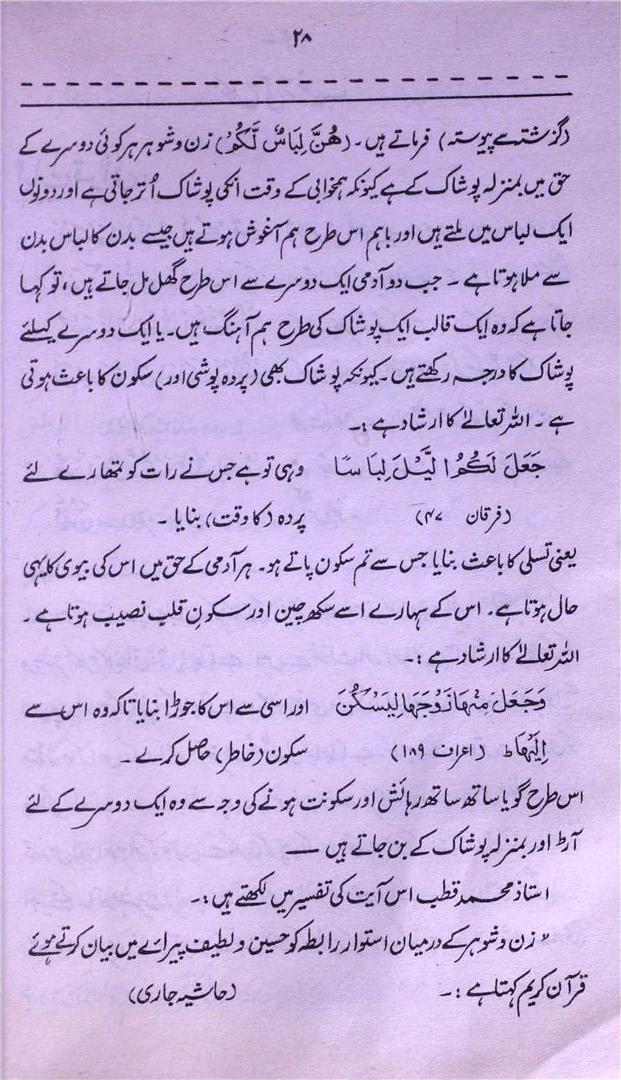 ۲۸
(گزشتہ سے پیوستہ) فرماتے ہیں۔ (هُنَّ لِبَاسٌ لَّكُمْ) زن و شوہر ہر کوئی دوسرے کے
حق میں بمنزلہ پوشاک کے ہے کیونکہ ہمخوابی کے وقت انکی پوشاک اُتر جاتی ہے اور دونوں
ایک لباس میں ملتے ہیں اور باہم اس طرح ہم آغوش ہوتے ہیں جیسے بدن کا لباس بدن
سے ملا ہوتا ہے ۔ جب دو آدمی ایک دوسرے سے اس طرح گھل مل جاتے ہیں، تو کہا
جاتا ہے کہ وہ ایک قالب ایک پوشاک کی طرح ہم آہنگ ہیں۔ یا ایک دوسرے کیلئے
پوشاک کا درجہ رکھتے ہیں۔ کیونکہ پوشاک بھی (پردہ پوشی اور) سکون کا باعث ہوتی
ہے ۔ اللہ تعالےٰ کا ارشاد ہے :۔
جَعَلَ لَكُمُ الَّيْلَ لِبَاسًا وہی تو ہے جس نے رات کو تمھارے لئے
(فرقان ۴۷) پردہ (کا وقت) بنایا ۔
یعنی تسلی کا باعث بنایا جس سے تم سکون پاتے ہو۔ ہر آدمی کے حق میں اس کی بیوی کا یہی
حال ہوتا ہے۔ اس کے سہارے اسے سکھ چین اور سکونِ قلب نصیب ہوتا ہے ۔
اللہ تعالےٰ کا ارشاد ہے :۔
وَجَعَلَ مِنْهَا زَوْجَهَا لِيَسْكُنَ اور اسی سے اس کا جوڑا بنایا تاکہ وہ اس سے
اِلَيْهَا ط (اعراف ۱۸۹) سکون (خاطر) حاصل کرے ۔
اس طرح گویا ساتھ ساتھ رہائش اور سکونت ہونے کی وجہ سے وہ ایک دوسرے کے لئے
آڑ اور بمنزلہ پوشاک کے بن جاتے ہیں ——
استاذ محمد قطب اس آیت کی تفسیر میں لکھتے ہیں :۔
" زن و شوہر کے درمیان استوار رابطہ کو حسین و لطیف پیرائے میں بیان کرتے ہوئے
قرآن کریم کہتا ہے :۔ (حاشیہ جاری)